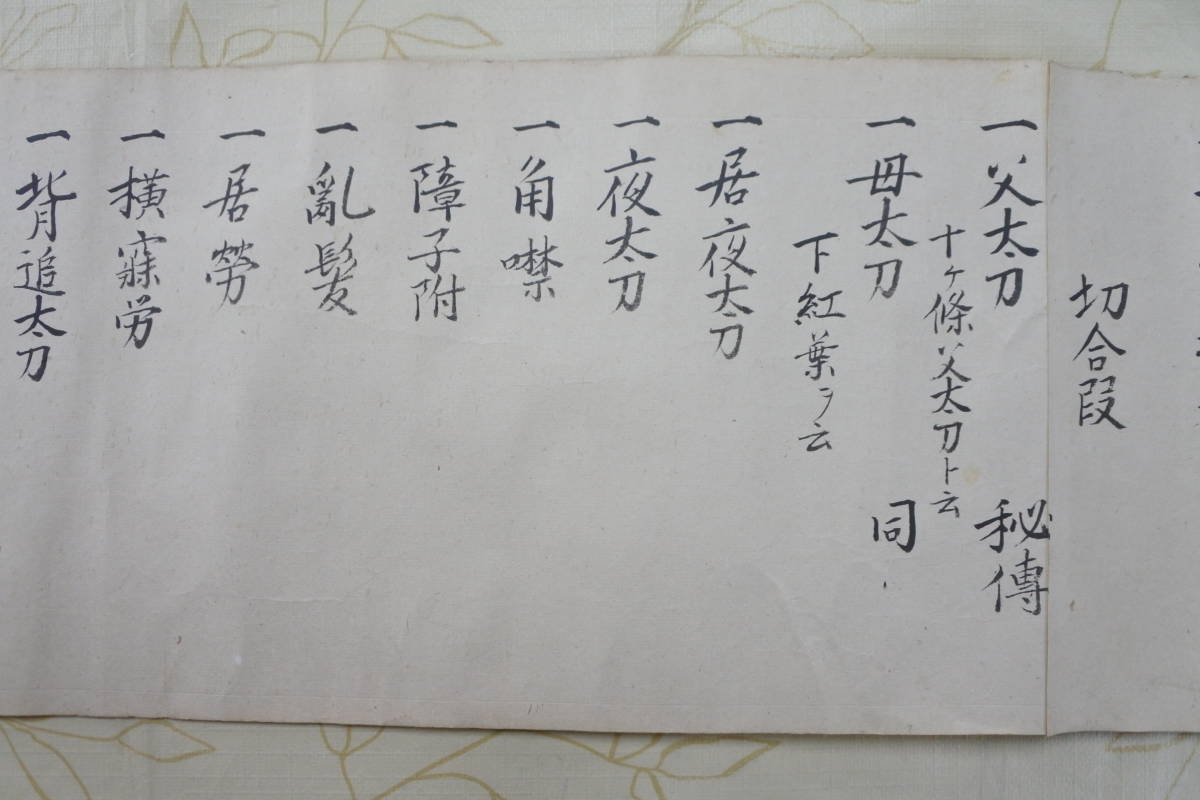 切合段
一父太刀 秘傳
十ヶ條父太刀ト云
一母太刀 同
下紅葉ヲ云
一居夜太刀
一夜太刀
一角噤
一障子附
一亂髮
一居勞
一橫寐労
一背追太刀